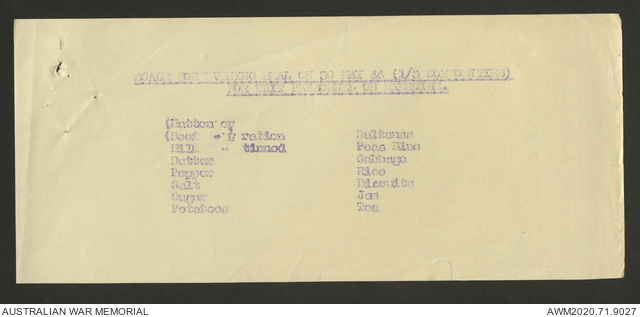 SCALE FOR EVENING MEAL ON 30 MAY 44 (1/3 COMMODITIES)
FOR UNIT PERSONNEL ON EXERCISE.
(Mutton or
(Beef - ½ ration
Milk - tinned
Butter
Pepper
Salt
Sugar
Potatoes
Sultanas
Peas Blue
Cabbage
Rice
Biscuits
Jam
Tea
AUSTRALIAN WAR MEMORIAL
AWM2020.71.9027